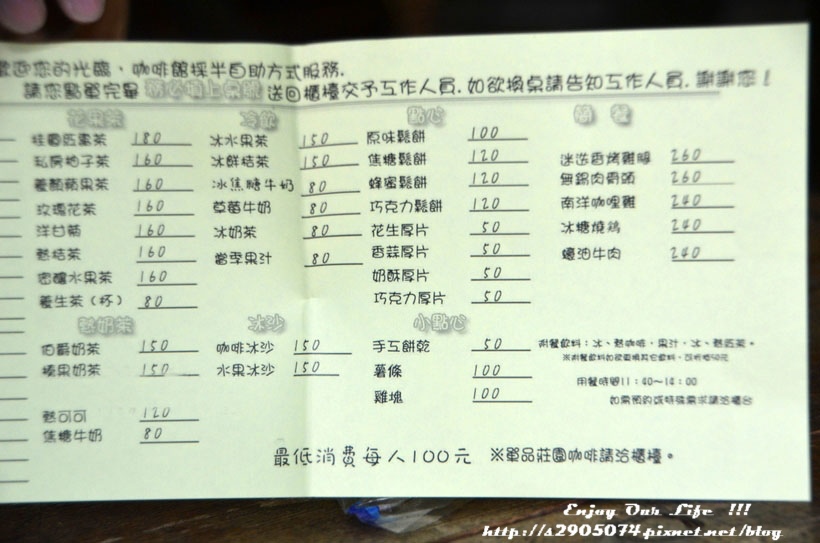 歡迎您的光臨，咖啡館採半自助方式服務.
請您點單完畢 務必填上桌號 送回櫃檯交予工作人員.如欲換桌請告知工作人員.謝謝您！
花果茶
桂圓紅棗茶 180
私房柚子茶 160
養顏蘋果茶 160
玫瑰花茶 160
洋甘菊 160
熱桔茶 160
密釀水果茶 160
養生茶（杯） 80
熱奶茶
伯爵奶茶 150
榛果奶茶 150
熱可可 120
焦糖牛奶 80
冷飲
冰水果茶 150
冰鮮桔茶 150
冰焦糖牛奶 80
草莓牛奶 80
冰奶茶 80
當季果汁 80
冰沙
咖啡冰沙 150
水果冰沙 150
點心
原味鬆餅 100
焦糖鬆餅 120
蜂蜜鬆餅 120
巧克力鬆餅 120
花生厚片 50
香蒜厚片 50
奶酥厚片 50
巧克力厚片 50
小點心
手工餅乾 50
薯條 100
雞塊 100
簡餐
迷迭香烤雞腿 260
無錫肉骨頭 260
南洋咖哩雞 240
冰糖燒鴨 240
蠔油牛肉 240
附餐飲料：冰、熱咖啡，果汁，冰、熱紅茶。
用餐時間11：40～14：00
如需預約或特殊需求請洽櫃台
最低消費每人100元 ※單品莊園咖啡請洽櫃檯。
Enjoy Our Life !!!
http://s2905074.pixnet.net/blog